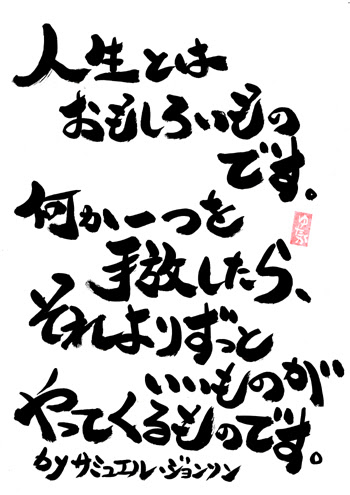 人生とは
おもしろいもの
です。
何か一つを
手放したら、
それよりずっと
いいものが
やってくるものです。
byサミュエル・ジョンソン